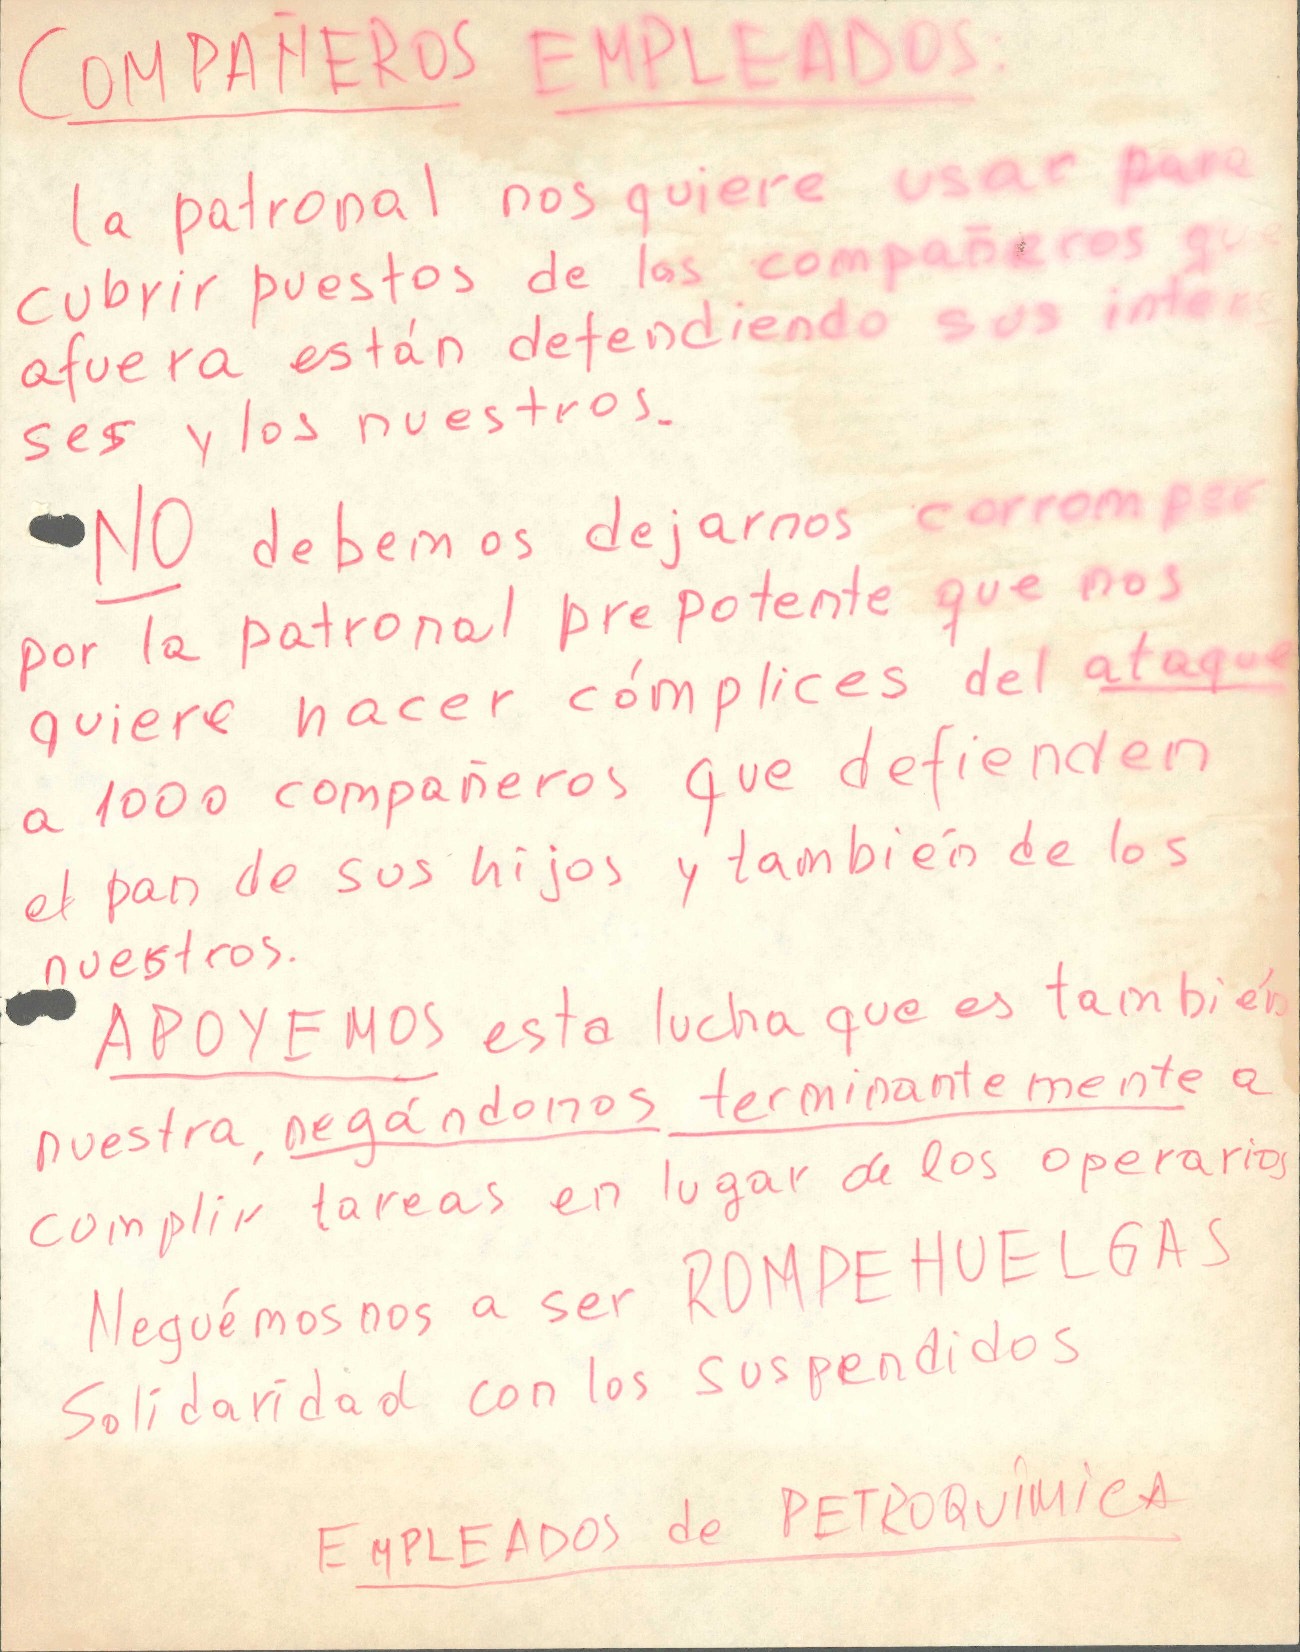 COMPAÑEROS EMPLEADOS:
la patronal nos quiere usar para
cubrir puestos de los compañeros que
afuera están defendiendo sus intere
ses y los nuestros.
NO debemos dejarnos corromper
por la patronal prepotente que nos
quiere hacer cómplices del ataque
a 1000 compañeros que defienden
el pan de sus hijos y también de los
nuestros.
APOYEMOS esta lucha que es también
nuestra, negándonos terminantemente a
cumplir tareas en lugar de los operarios
Neguémosnos a ser ROMPEHUELGAS
Solidaridad con los suspendidos
EMPLEADOS de PETROQUÍMICA